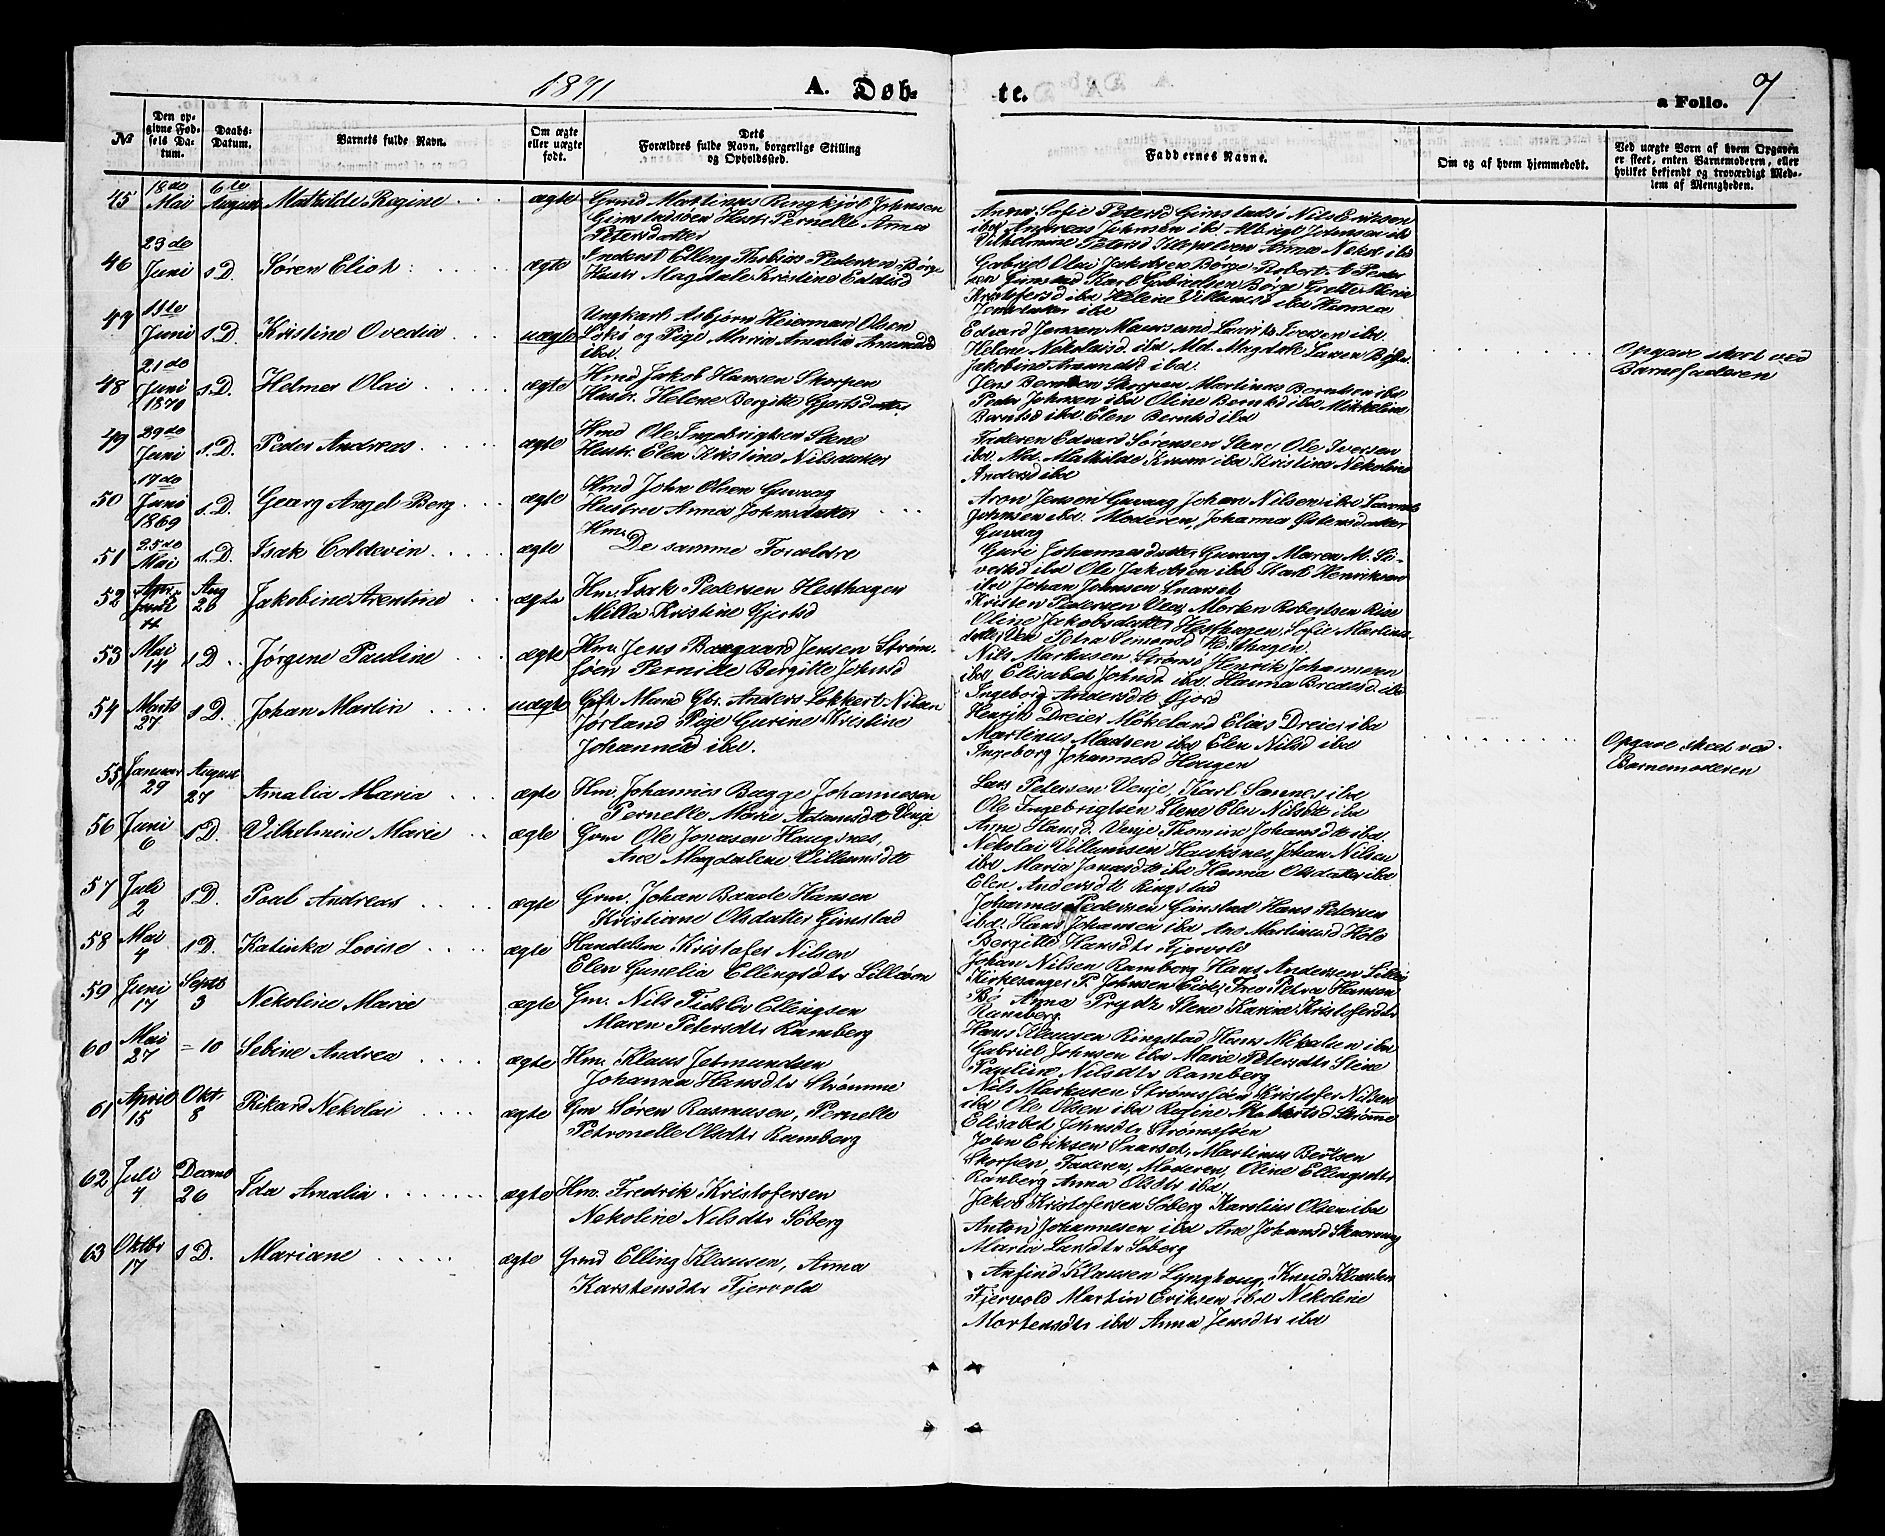 1871 A. Døbte. a Folio. 7
No
Den opgivne Fødsels Datum.
Daabs-Datum.
Barnets fulde Navn.
Om ægte eller uægte født.
Dets Forældres fulde Navn, borgerlige Stilling og Opholdssted.
Faddernes Navne.
Om og af hvem hjemmedøbt.
Ved uægte Børn af hvem Opgaven er skeet, enten Barnemoderen, eller hvilket bekjendt og troværdigt Medlem af Menigheden.
45 18de Mai 6te August Mathilde Regine ægte Grmd Martinus Ringkjøb Johnsen
Gimstadsøen Hustr Pernelle Anna
Petersdatter
Anna Sofie Petersd Gimstadsø Nils Eriksen
ibd Andreas Johnsen ibd Albrigt Johnsen ibd
Vilhelmine Petersd Anna Nekol ibd
46 23de Juni s.D. Søren Eliot ægte Inderst Elling Thobias Pedersen Børge
Hustr Magdale Kristine
Gabriel Olai Jakobsen Børge Robert A Peder
sen Gimstad Karl Gabrielsen Børge Grette Maria
Kristofersd ibd Heline Villumsd ibd
ibd
47 11te Juni s.D. Kristine Ovedia uægte Ungkarl Asbjørn Heierman Olsen
og Pige Maria Amalia Amundsd
ibd.
Edvard Jensen Maursund Lavrits Iversen ibd
Helene Nekolaisd ibd Md. Magdal. Lassen
Jakobine Amundsd ibd.
Opgave skeet ved
Barnefaderen
48 21de Juni 1870 s.D. Helmer Olai ægte Hmd Jakob Hansen Skorpen
Hustr. Helene Bergitte Gjertsdatter
Jens Berntsen Skorpen Martinus Berntsen ibd
Peder Johnsen ibd Oline Berntsd ibd Mikkeline
Berntsd ibd. Elen Berntsd ibd
49 29de Juni s.D. Peder Andreas ægte Hmd Ole Ingebrigtsen Stene
Hustr. Elen Kristine Nilsdatter
Faderen Edvard Sørensen Stene Ole Iversen
ibd. Md. Mathilde ibd Kristine Nekoline
Andersd ibd
50 17de Juni 1869 s.D. Georg Angel Berg ægte Hmd John Olsen Guvaag
Hustru Anna Johnsdatter
Aron Jensen Guvaag Johan Nilsen ibd
Johnsen ibd. Moderen, Johanna
Guvaag
51 25de Mai s.D. Isak Coldevin ægte Hm. De samme Forældre
Guri Johannesdatter Guvaag Maren M. Si-
vertsd ibd Ole Jakobsen ibd Karl Henriksen
ibd Johan Johnsen
52 Juni 14 Aug 26 Jakobine Arentine ægte Hm. Isak Pedersen Hesthagen
Milla Kristine Gjertsd
Kristen Pedersen Morten Robertsen
Oline Jakobsdatter Hesthagen, Sofie Martins-
datter Petra Simonsd Hesthagen.
53 Mai 14 s D. Jørgene Pauline ægte Hm. Jens Baagaard Jensen Strøm-
søen Pernille Bergitte Johnsd
Nils Markusen Strømsø Henrik Johannesen
ibd Elisabet Johnsd ibd. Hanna Bredesd ibd
Ingeborg Andersdtr Gjerd
54 Marts 27 s D. Johan Martin uægte Gift Mand Gbr. Anders Lokkert Nilsen
Jørland Pige Gurine Kristine
Johannesd ibd.
Henrik Dreier Møkeland Elias Dreier ibd
Martinus Madsen ibd Elen Nilsd ibd
Ingeborg Johannesd Haugen
Opgave skeet ved
Barnemoderen
55 Januar 29 August 27 Amalia Maria ægte Hm. Johannes Bagge Johannesen
Pernelle Marie Adamsdtr Venje
Lars Petersen Venje, Karl Sannes ibd
Ole Ingebrigtsen Stene Elen Nilsdtr ibd
Anne Hansd. Venje Thomine Johansdtr ibd
56 Juni 6 s D. Vilhelmine Marie ægte Grm Ole Jonassen Haugsnes,
Ane Magdalene Villumsdtr
Nekolai Villumsen Hauksnes, Johan Nilsen
ibd Maria Jonasdtr ibd Hanna Olsdatter ibd
Elen Andersdtr Ringstad
57 Juli 2 s D. Poal Andreas ægte Grm. Johan Baade Hansen
Kristiane Olsdatter Gimstad
Johannes Pedersen Gimstad Hans Petersen
ibd. Hans Johansen ibd Ane Martinusd
Bergitte Hansdtr Fjervold
58 Mai 4 s D. Katinka Lovise ægte Handelsm Kristofer Nilsen
Elen Gunelia Ellingsdtr Lilleøen
Johan Nilsen Ramberg Hans Andersen Lilleø
Kirkesanger P. Johnsen Eide, Frøe Petra Hansen
Bø Anna Prydz Stene Karine Kristofersdtr
Ramberg.
59 Juni 17 Septb 3 Nekoline Marie ægte Gm. Nils Fidelir Ellingsen
Maren Petersdtr Ramberg
Hans Klausen Ringstad Hans Mikalsen ibd
Gabriel Johnsen ibd Marie Petersdtr Steine
Pauline Nilsdtr Ramberg
60 Mai 27 = 10 Sebine Andrea ægte Hm. Klaus Jetmundsen
Johanna Hansdtr Strømme
Nils Markusen Strømsøen Kristofer Nilsen
ibd Ole Olsen ibd Regine Strømme
Elisabet Johnsdtr Strømsøen
61 April 15 Okt. 8 Rikard Nekolai ægte Gm Søren Rasmusen, Pernelle
Petronelle Olsdtr Ramberg
John Eriksen Snarset, Martinus Bertsen
Skorpen, Faderen, Moderen, Oline Ellingsdtr
Ramberg Anna Olsdtr ibd
62 Juli 4 Decemb 26 Ida Amalia ægte Hm. Fredrik Kristofersen
Nekoline Nilsdtr Søberg
Jakob Kristofersen Søberg Karolius Olsen ibd
Anton Johannesen ibd Ane Johansd
Maria Larsdtr Søberg
63 Oktbr 17 s D. Mariane ægte Grmd Elling Klausen, Anna
Karstensdtr Fjervold
Anfind Klausen Lynghoug, Knud Klausen
Fjervold Martin Eriksen ibd Nekoline
Mortensdtr ibd Anna Jensdtr ibd